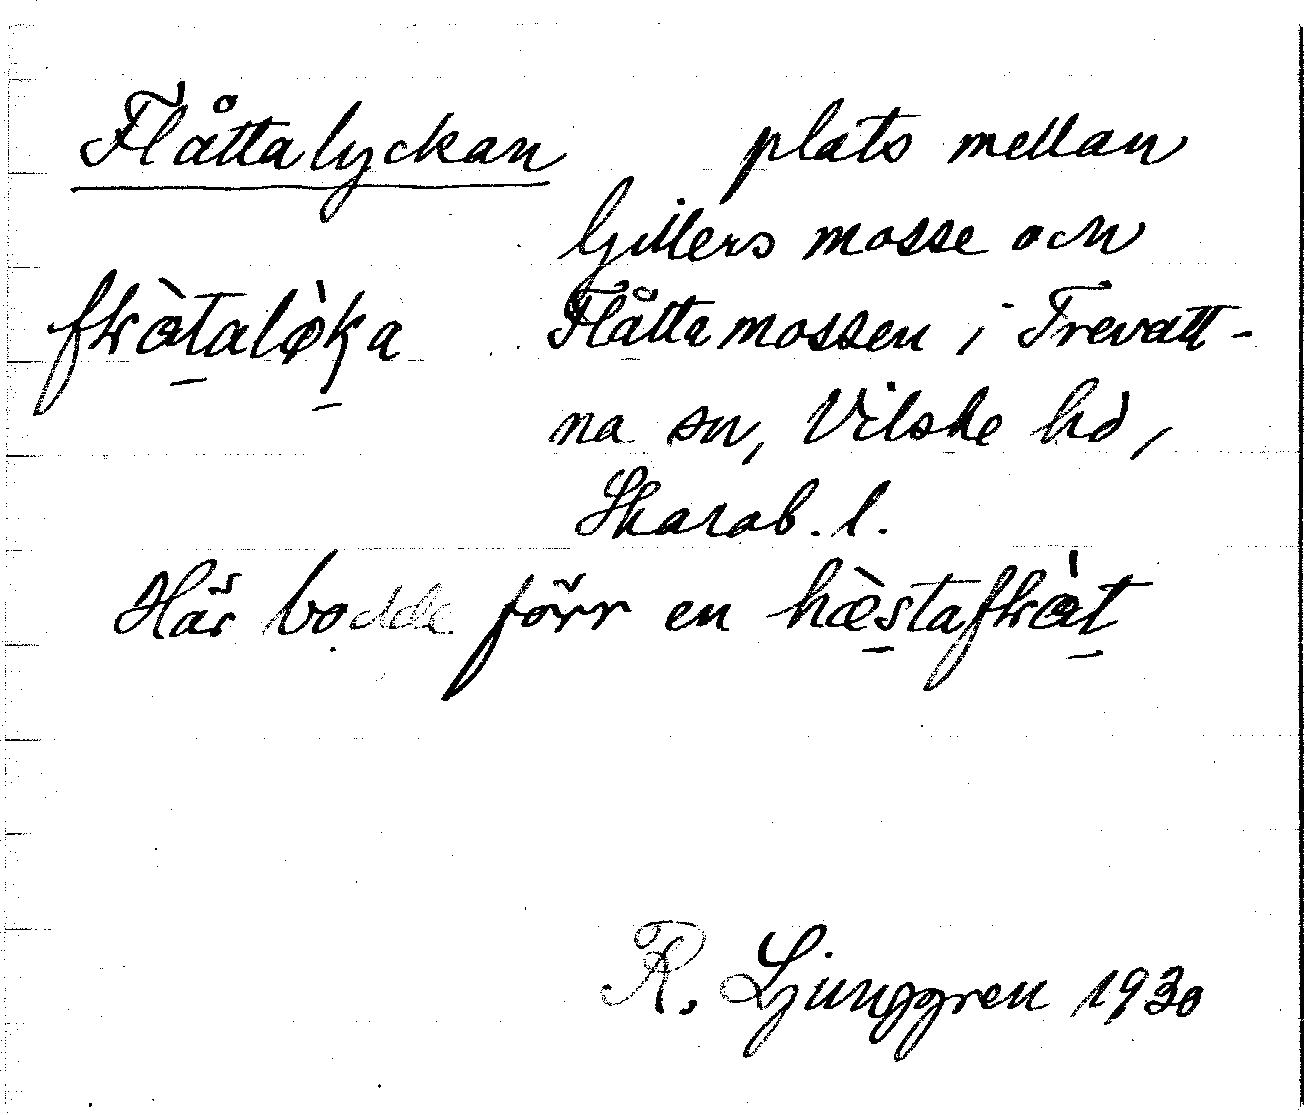 Flåttalyckan plats mellan
Gillers mosse och
fɫàtalø̀ka Flåttamossen i Trevatt-
na sn, Vilske hd,
Skarab. l.
Här bodde förr en hæ̀stafɫàt
R. Ljunggren 1930